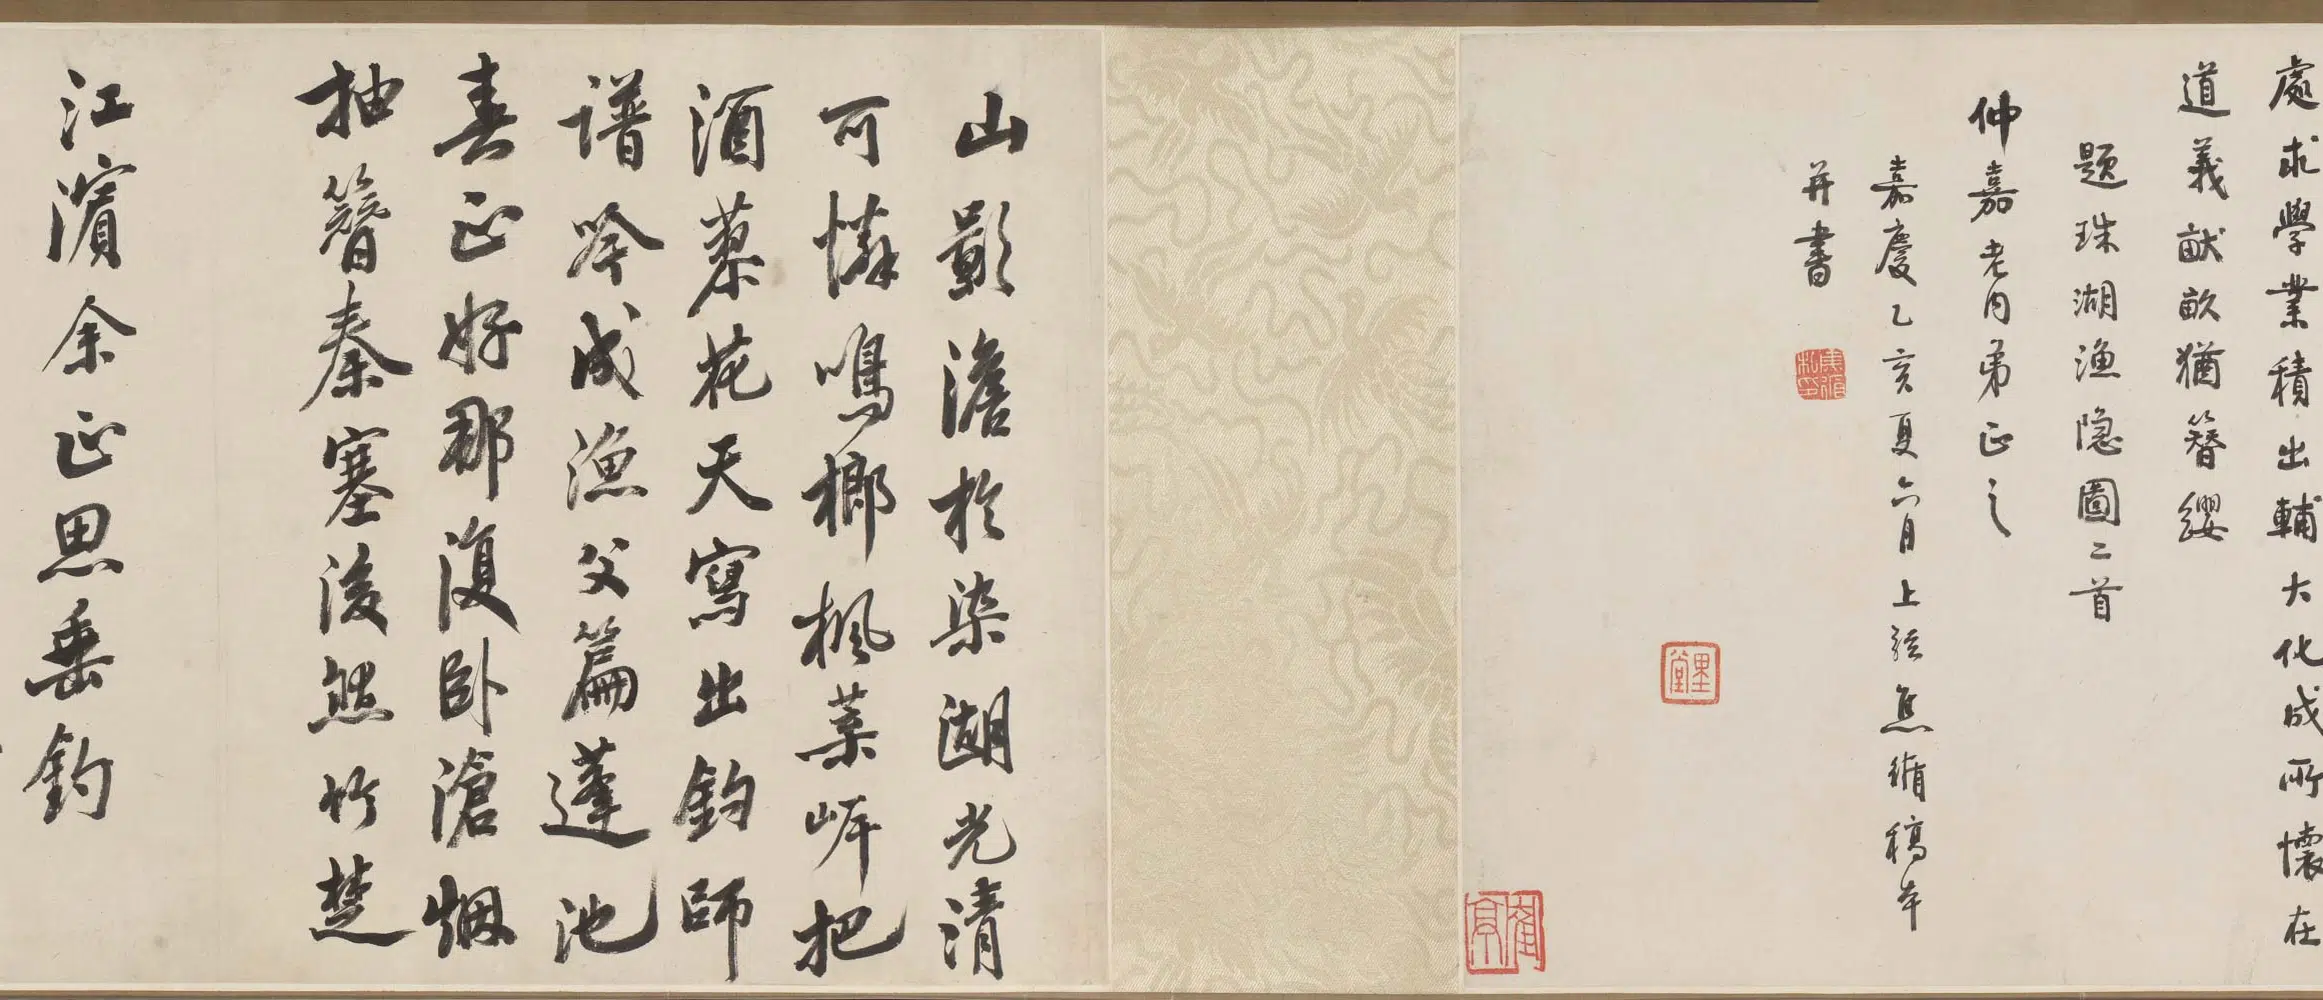 處求學業積出輔大化成所懷在
道義猷畝猶簪纓
題珠湖漁隐圖二首
仲嘉老内弟正之
嘉慶乙亥夏六月上弦焦循稿本
并書
焦循私印
里堂
山影澹於染湖光清
可憐鳴榔楓葉岸把
酒蓼花天寫出釣師
譜吟成漁父篇蓬池
春正好那復卧滄烟
抽簪秦塞後然竹楚
江濱余正思垂釣